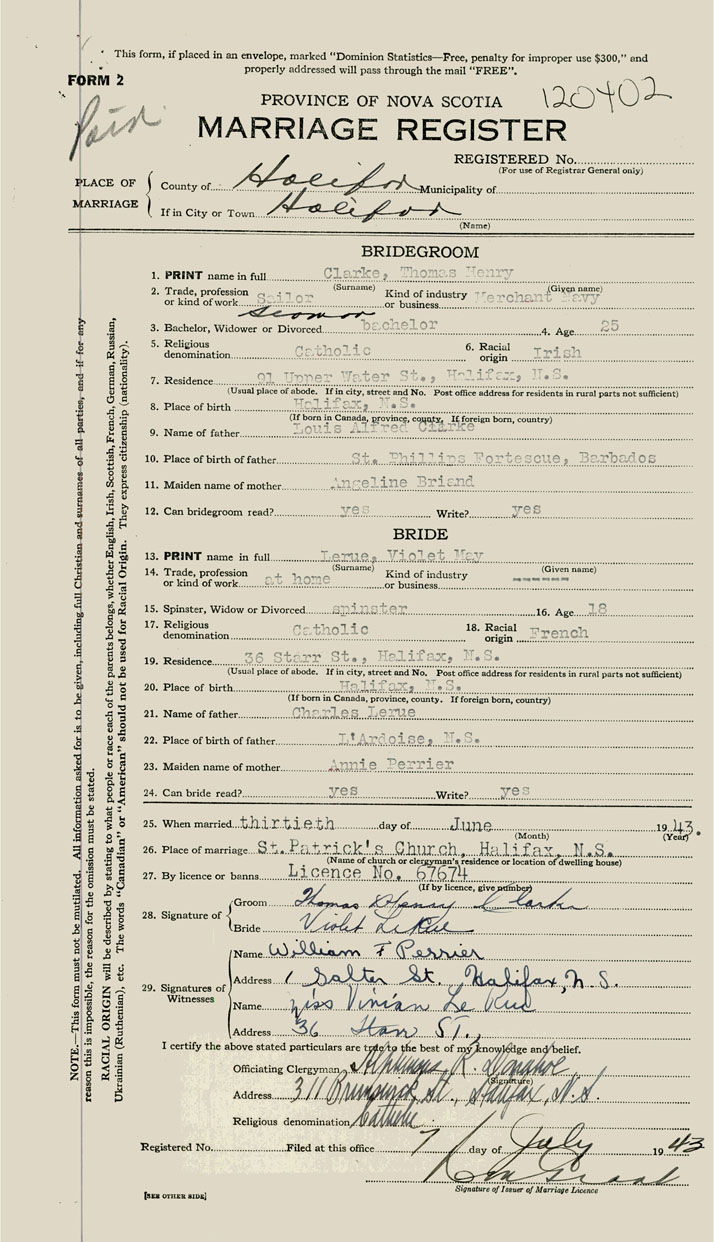 This form, if placed in an envelope, marked "Dominion Statistics—Free, penalty for improper use $300," and
properly addressed will pass through the mail "FREE".
FORM 2
Paid
120402
PROVINCE OF NOVA SCOTIA
MARRIAGE REGISTER
REGISTERED No.
(For use of Registrar General only)
PLACE OF MARRIAGE
County of Halifax Municipality of
If in City or Town Halifax
(Name)
BRIDEGROOM
1. PRINT name in full Clarke, Thomas Henry
(Surname) (Given name)
2. Trade, profession or kind of work Sailor Kind of industry or business Merchant Navy
Seaman
3. Bachelor, Widower or Divorced bachelor 4. Age 25
5. Religious denomination Catholic 6. Racial origin Irish
7. Residence 91 Upper Water St., Halifax, N.S.
(Usual place of abode. If in city, street and No. Post office address for residents in rural parts not sufficient)
8. Place of birth Halifax, N.S.
(If born in Canada, province, county, If foreign born, country)
9. Name of father Louis Alfred Clarke
10. Place of birth of father St. Phillips Fortescue, Barbados
11. Maiden name of mother Angeline Briand
12. Can bridegroom read? yes Write? yes
BRIDE
13. PRINT name in full Lerue, Violet May
(Surname) (Given name)
14. Trade, profession or kind of work at home Kind of industry or business -----
15. Spinster, Widow or Divorced spinster 16. Age 18
17. Religious denomination Catholic 18. Racial origin French
19. Residence 36 Starr St., Halifax, N.S.
(Usual place of abode. If in city, street and No. Post office address for residents in rural parts not sufficient)
20. Place of birth Halifax, N.S.
(If born in Canada, province, county. If foreign born, country)
21. Name of father Charles Lerue
22. Place of birth of father L'Ardoise, N.S.
23. Maiden name of mother Annie Perrier
24. Can bride read? yes Write? yes
25. When married thirtieth day of June 1943.
(Month) (Year)
26. Place of marriage St. Patrick's Church, Halifax, N.S.
(Name of church or clergyman's residence or location of dwelling house)
27. By licence or banns Licence No. 67674
(If by licence, give number)
28. Signature of
Groom Thomas Henry Clarke
Bride Violet LeRue
29. Signatures of Witnesses
Name William F Perrier
Address 1 Salter St. Halifax, N.S.
Name Miss Vivian Le Rue
Address 36 Starr ST.,
I certify the above stated particulars are true to the best of my knowledge and belief.
Officiating Clergyman R. Donahoe
(Signature)
Address 311 Brunswick St., Halifax, N.S.
Religious denomination Catholic
Registered No. Filed at this office 7 day of July 1943
Signature of Issuer of Marriage Licence
[SEE OTHER SIDE]
NOTE.—This form must not be mutilated. All information asked for is to be given, including full Christian and surnames of all parties, and if for any
reason this is impossible, the reason for the omission must be stated.
RACIAL ORIGIN will be described by stating to what people or race each of the parents belongs, whether English, Irish, Scottish, French, German, Russian,
Ukrainian (Ruthenian), etc. The words "Canadian" or "American" should not be used for Racial Origin. They express citizenship (nationality).